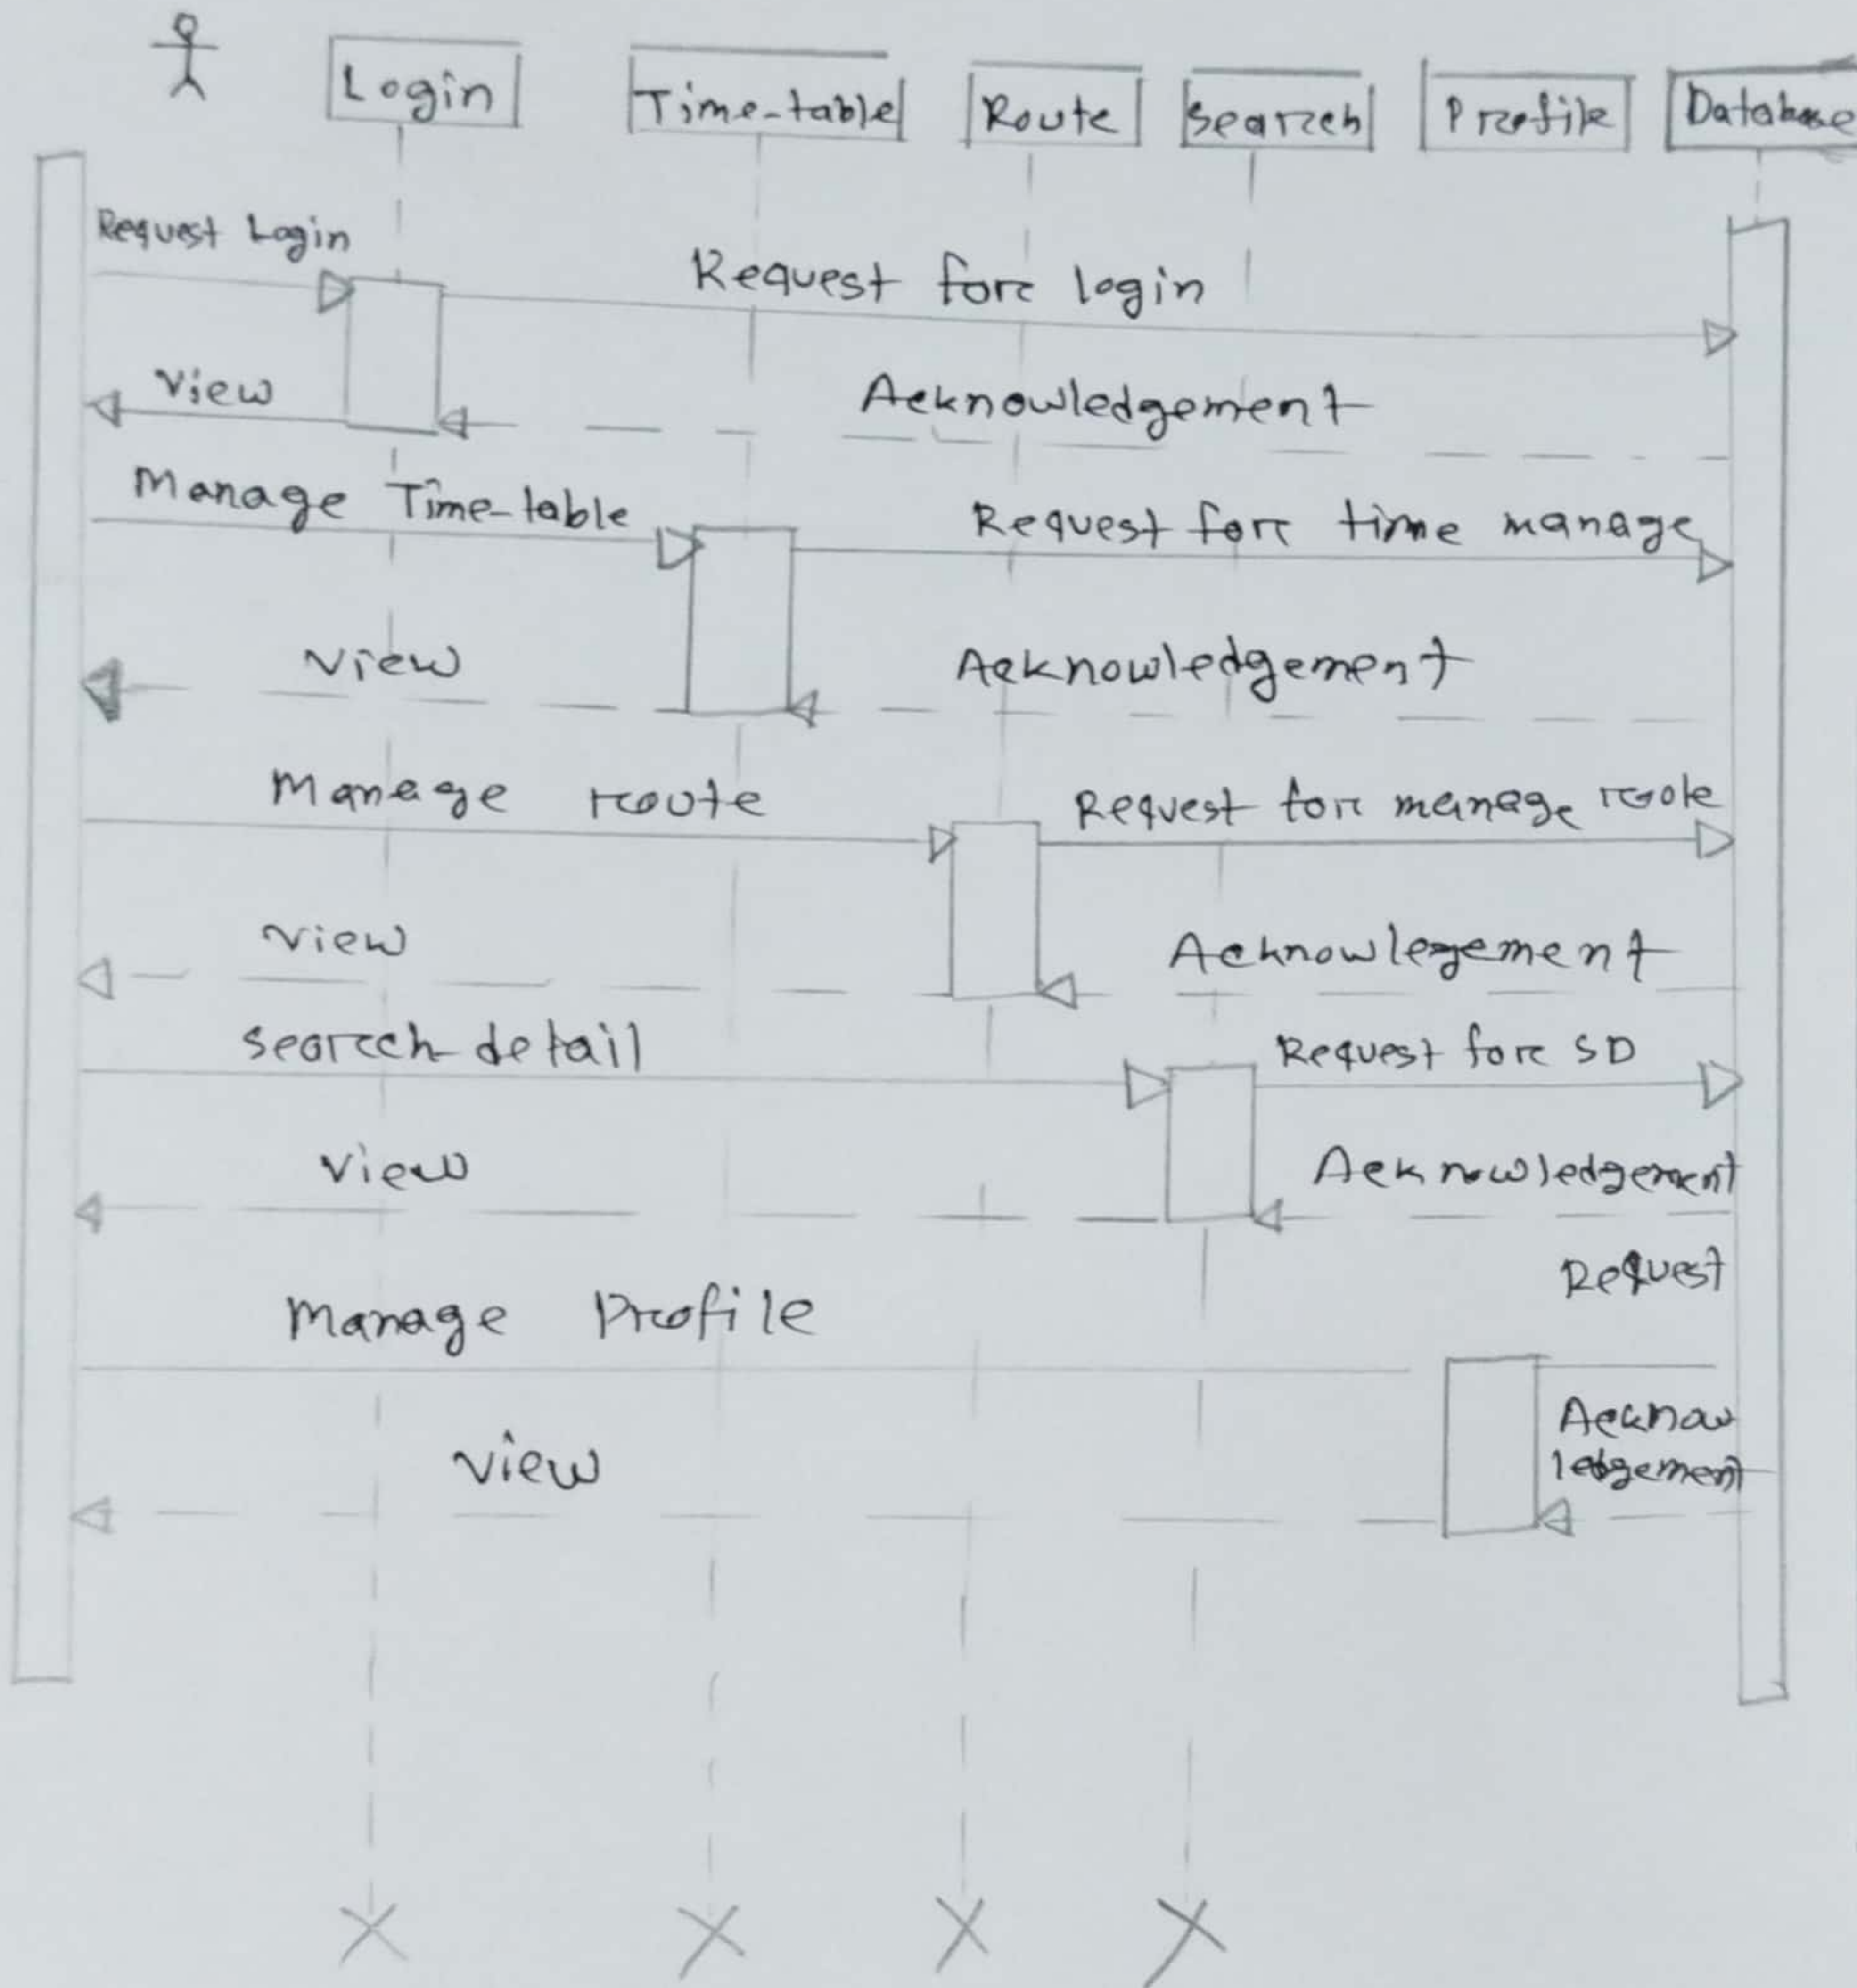 Login
Time-table
Route
Search
Profile
Database
Request Login
Request for login
View
Acknowledgement
Manage Time-table
Request for time manage
View
Acknowledgement
Manage route
Request for manage route
View
Acknowlegement
Search detail
Request for SD
View
Acknowledgement
Request
Manage Profile
Acknow
ledgement
View